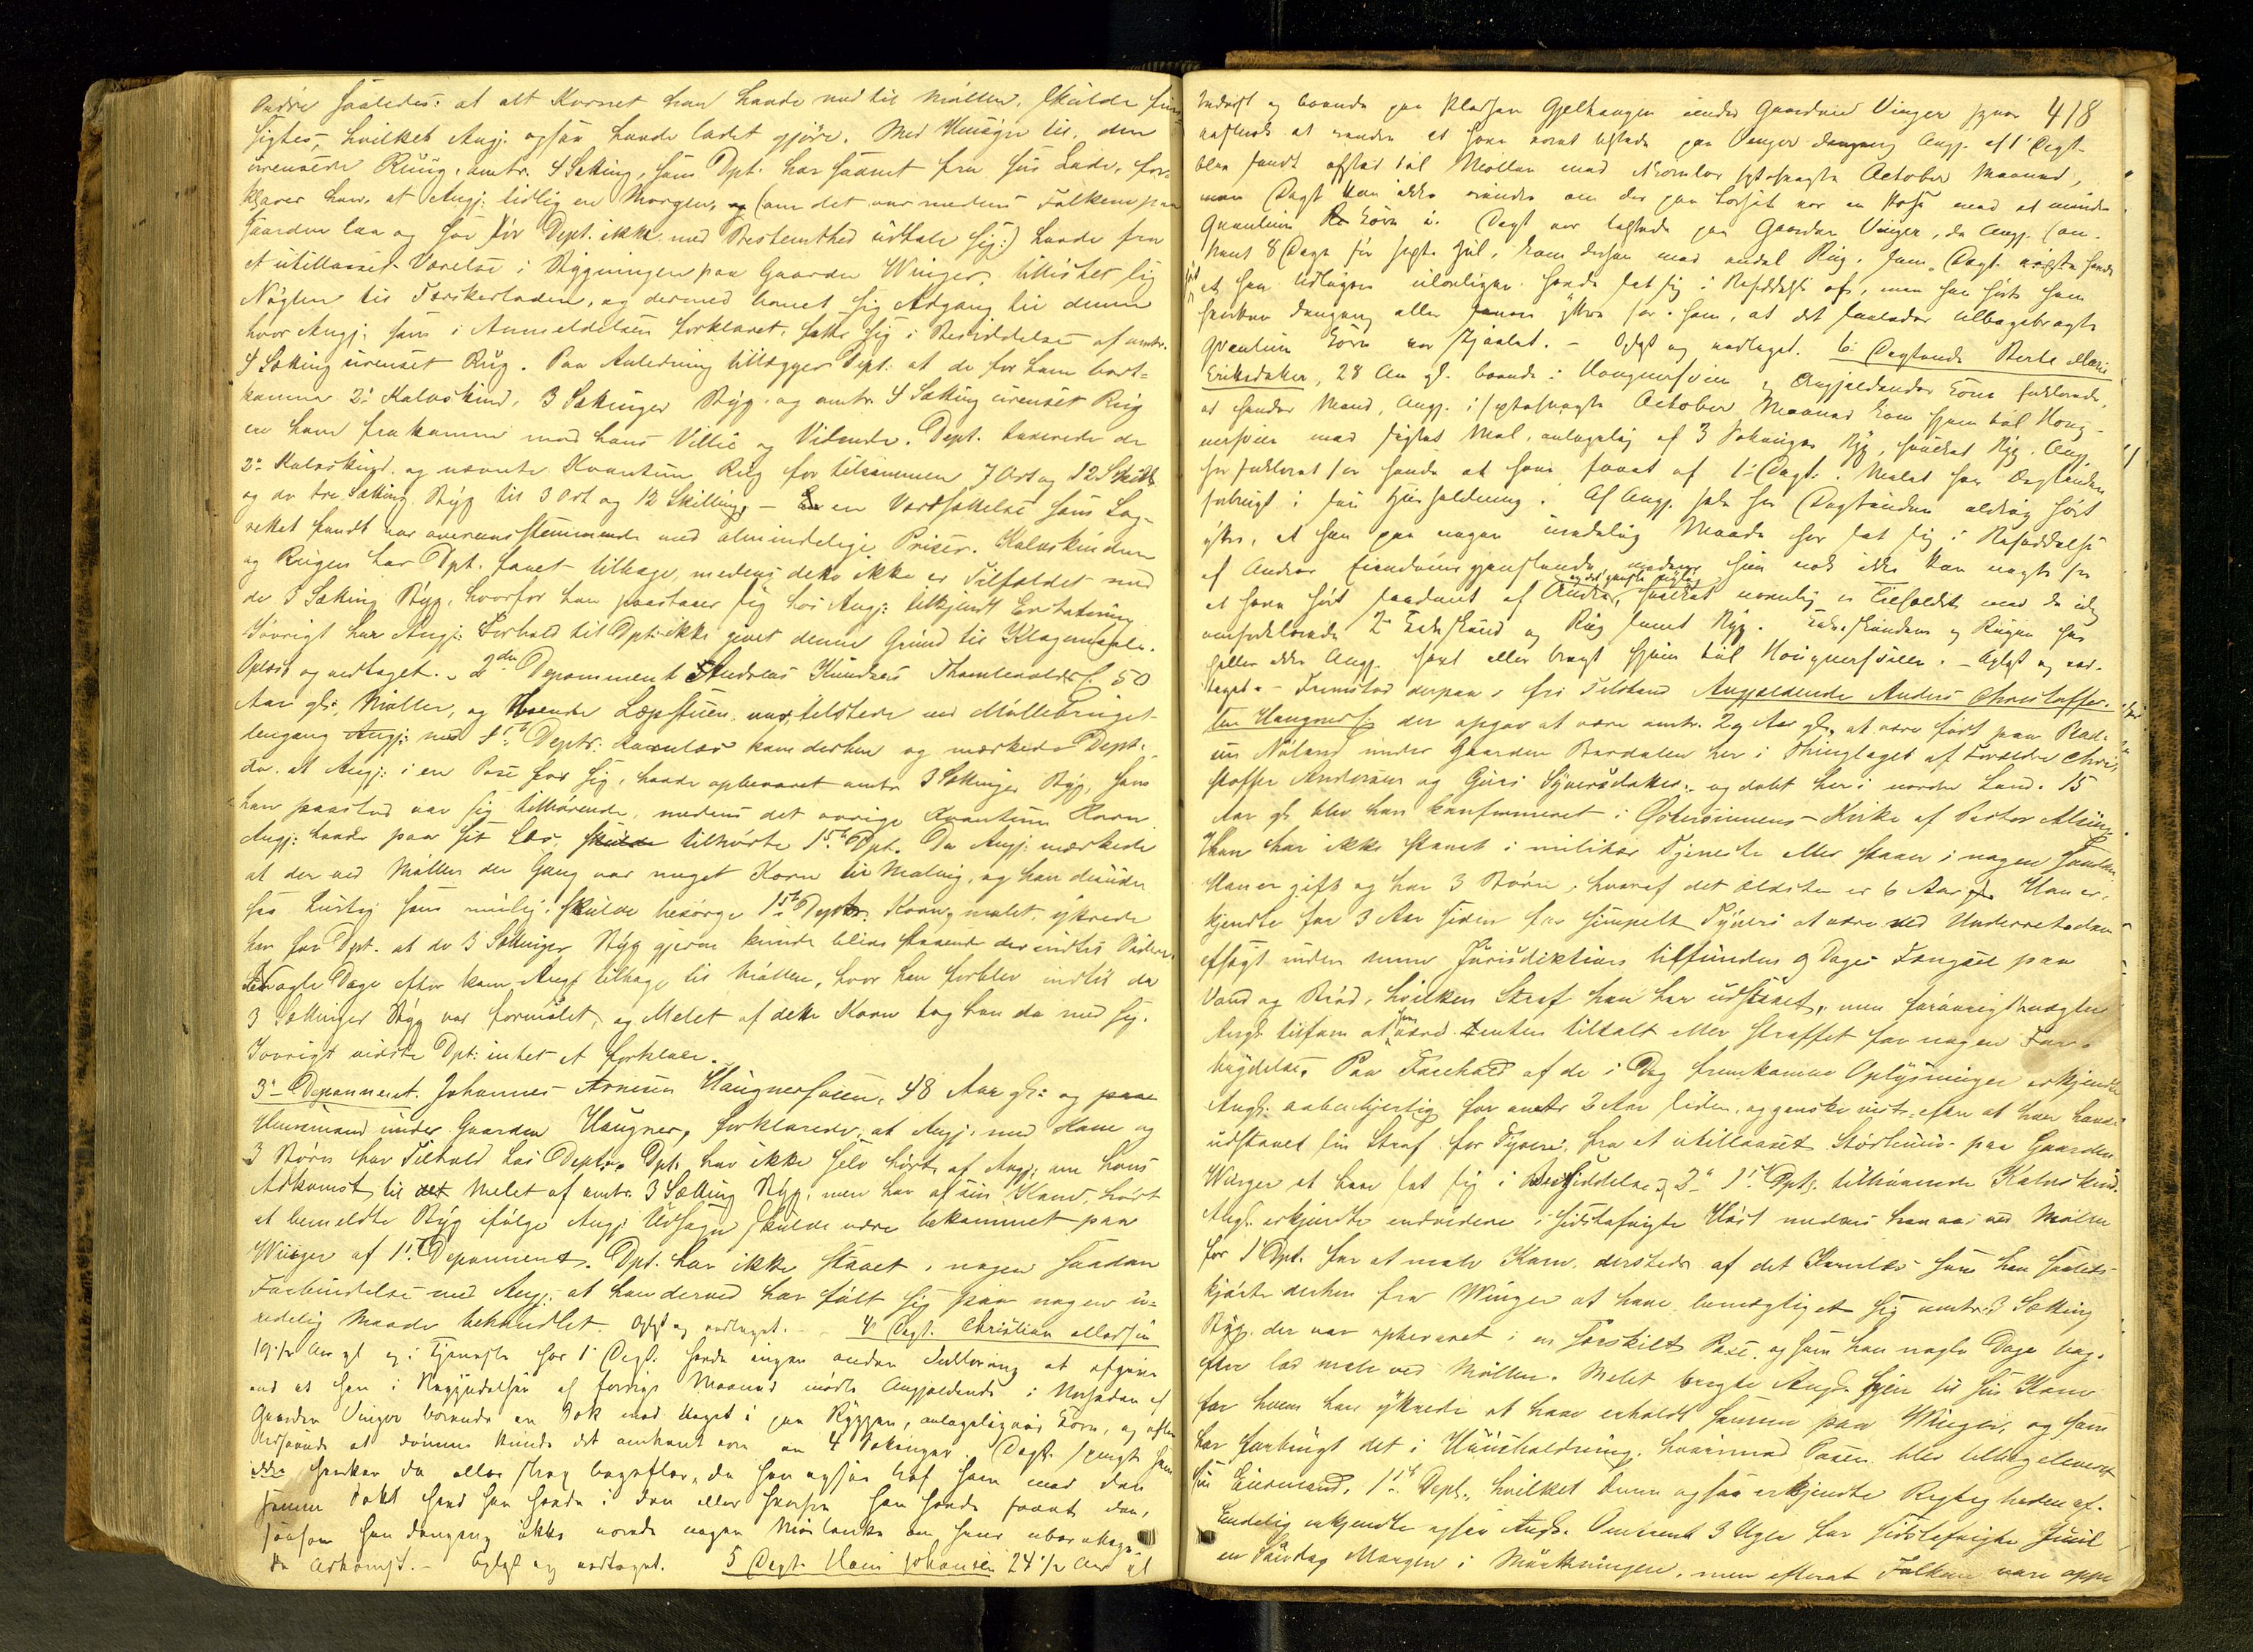 Andre saaledes: at alt Kornet han havde med til Møllen, skulde fin
sigtes, hvilket Angj: ogsaa havde ladet gjöre. Med Hensyn til den
urensede Rüug, omtr. 4 Sætting, som Dpt. har faaet fra sin Lade, for-
klarer han, at Angj: tidlig en Morgen, (om det var medens Folkene paa
Gaarden laa og sov tör Dept. ikke med Bestemthed udtale sig:) havde fra
et utillaaset Værelse i Bygningen paa Gaarden Winger, tillistet sig
Nöglen til Tærskerladen, og dermed banet sig Adgang til denne
hvor Angj: som i Anmeldelsen forklaret, satte sig i Besiddelse af omtr.
4 Sætting urenset Rug. Paa Anledning tillægger Dept: at de for ham bort-
komne 2de Kalvskind, 3 Sættinger Byg og omtr. 4 Sætting urenset Rug
er ham frakommen mod hans Villie og Vidende. Dept. taxerede de
2de Kalvskind og nævnte Kvantum Rug for tilsammen 7 Ort og 12 Skill
og de tre Sætting Byg til 3 Ort og 12 Skilling, – en Værdsættelse som Lag-
rettet fandt var overensstemmende med almindelige Priser. Kalvskindene
og Rugen har Dpt. faaet tilbage, medens dette ikke er Tilfældet med
de 3 Sætting Byg, hvorfor han paastaaer sig hos Angj: tilkjendt Erstatning
Iövrigt har Angj: Forhold til Dpt: ikke givet denne Grund til Klagemaal.
Oplæst og vedtaget. – 2den Deponent Andreas Knudsen Thomlevolds 50
Aar gl:, Møller, og boende Læpstuen, var tilstede ved Møllebruget
dengang Angj: med 1ste Depts: Kornlæs kom derhen og mærkede Dept:
da, at Angj: i en Pose for sig, havde opbevaret omtr. 3 Sættinger Byg, som
han paastod var sig tilhørende, medens det øvrige Kvantum Korn
Angj: havde paa sit Læs, tilhørte 1ste Dpt. Da Angj: mærkede
at der ved Møllen den Gang var meget Korn til Maling, og han desuden
saa hurtig som mulig skulde besörge 1ste Dpts. Korn malet, yttrede
han for Dpt. at de 3 Sættinger Byg gjerne kunde blive staaende der indtil Videre.
Nogle Dage efter kom Angj tilbage til Møllen, hvor han forblev indtil de
3 Sættinger Byg var formalet, og Melet af dette Korn tog han da med sig.
Iøvrigt vidste Dpt: intet at forklare.
3die Deponent. Johannes Arnesen Haugnersveen, 48 Aar gl: og
Huusmand under Gaarden Haugner, forklarede, at Angj. med Kone og
3 Børn har Tilhold hos Deptn. Dpt. har ikke selv hørt af Angj: om hans
Adkomst til Melet af omtr. 3 Sætting Byg, men har af sin Kone hørt
at bemeldte Byg ifölge Angj: Udsagn skulde være bekommet paa
Winger af 1ste Deponent. Dpt. har ikke staaet i nogen saadan
Forbindelse med Angj: at han derved har følt sig paa nogen u-
redelig Maade behandlet. Oplæst og vedtaget. – 4de Dept. Christian
19½ Aar gl og i Tjeneste hos 1ste Dept: havde ingen anden Forklaring at afgive
end at han i Begyndelsen af forrige Maaned mødte Angjældende i Nærheden af
Gaarden Vinger bærende en Sæk med noget i paa Ryggen, antageligviis Korn, og efter
Udseende at dømme kunde det omtrent være en 4 Sættinger. Dept. spurgte ham
ikke hverken da eller strax bagefter, da han ogsaa traf ham med den
samme Sæk hvad han havde i den eller hvorfra han havde faaet den,
saasom han dengang ikke nærede nogen Mistanke om hans
Adkomst. – Oplæst og vedtaget. 5 Dept. Hans Johansen 24½ Aar gl
418
Inderst og boende paa Pladsen Gjelhaugen under Gaarden Vinger
at have været tilstede paa Vinger dengang Angj. af 1ste Dept.
blev sendt afsted til Møllen med Kornlæs sidstafvigte October Maaned,
men Dept kan ikke erindre om der paa Læsset var en Pose med et mindre
Quantum Korn i. Dept var tilstede paa Gaarden Vinger, da Angj. (om-
trent 8 Dage før sidste Jul, kom dersen med endel Rug, som Dept.
hverken dengang eller senere yttre for ham, at det saaledes tilbagebragte
Quantum Korn var stjaalet. – Oplæst og vedtaget. 6te Deptinde Berte Marie
Eriksdatter, 28 Aar gl. boende i Haugnersveen og Angjældendes Kone forklarede,
at hendes Mand, Angj. i sidstafvigte October Maaned kom hjem til Haug-
nersveen med sigtet Mel, antagelig af 3 Sættinger Byg, hvilket Byg Angj.
har forklaret for hende at have faaet af 1ste Dept:. Melet har Deptinden
forbrugt i sin Huusholdning. Af Angj. selv har Deptinden aldrig hørt
yttre, at han paa nogen uredelig Maade har sat sig i Besiddelse
af Andres Eiendomsgjenstande, medens hun nok ikke kan nægte for
at have hørt saadant af Andre, hvilket navnlig er Tilfældet med de idag
omforklarede 2de Kalvskind og Rug samt Byg. Kalvskindene og Rugen har
heller ikke Angj. havt eller bragt hjem til Haugnersveen. – Oplæst og ved-
taget. – Fremstod derpaa, fri Tilstand Angjældende Anders Christoffer-
sen Haugners, der opgav at være omtr. 29 Aar gl., at være født paa Pladsen
Nøland under Gaarden Bardalen her i Thinglaget af Forældre Chri-
stoffer Andersen og Guri Syversdatter, og døbt her i nordre Land. 15
Aar gl. blev han konfirmeret i Østersinnens Kirke af Pastor Alsing.
Han har ikke staaet i militær Tjeneste eller staaer i nogen saadan
Han er gift og har 3 Børn, hvoraf det ældste er 6 Aar. Han er-
kjendte for 3 Aar siden for simpelt Tyveri at være ved Underretsdom
afsagt inden denne Jurisdiktion tilfunden 9 Dages Fængsel paa
Vand og Brød, hvilken Straf han har udstaaet, men forøvrigt benægter
Angj. ligesom at have været tiltalt eller straffet for nogen For-
brydelse. Paa Forehold af de i Dag fremkomne Oplysninger erkjendte
Angj. aabenhjertig for omtr 2 Aar siden, og ganske vist efter at han havde
udstaaet sin Straf for Tyveri, fra et utillaaset Stødhuus paa Gaarden
Winger at have sat sig i Besiddelse af 2de 1ste Dpts. tilhørende Kalvskind.
Angj. erkjendte endvidere i sidstafvigte Høst medens han var ved Møllen
for 1ste Dpt. for at male Korn, dersteds af det Kornlæs som han saaledes
kjørte derhen fra Winger at have bemægtiget sig omtr. 3 Sætting
Byg, der var opbevaret i en særskilt Pose, og som han nogle Dage bag-
efter lod male ved Møllen. Melet bragte Angj. hjem til sin Kone
for hvem han yttrede at have erholdt samme paa Winger, og som
har forbrugt det i Huusholdning, hvorimod Posen blev tilbageleveret
sin Eiermand, 1ste Dept., hvilket denne ogsaa erkjendte Rigtigheden af.
Endelig erkjendte ogsaa Angj. omtrent 3 Uger før sidstafvigte Juul
en Søndag Morgen i Mørkningen, men efterat Folkene vare oppe